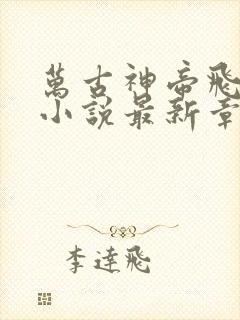 萬古神帝飛
小說最新章
李達飛